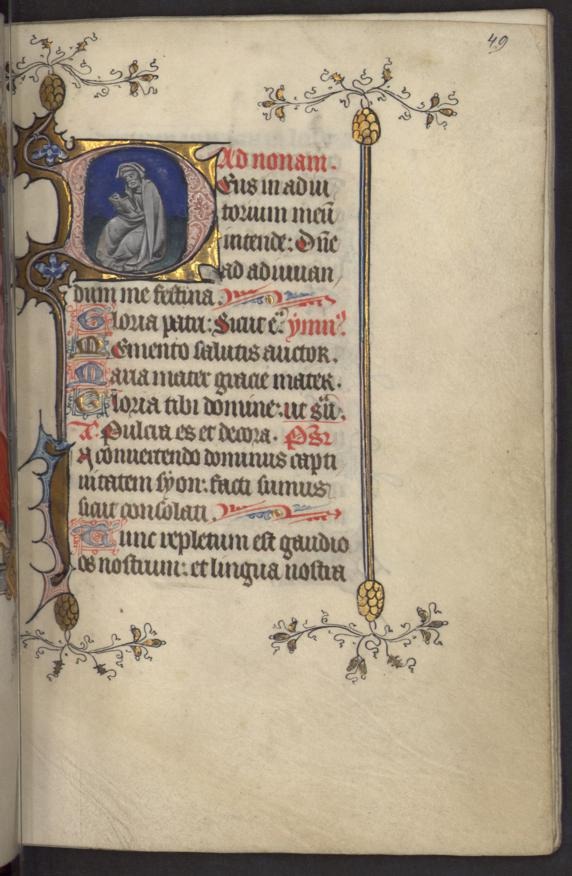 49
Ad nonam.
Deus in adiu
torium meū
intende: Dñe
ad adiuuan
dum me festina.
Gloria patri: Sicut e. ymnꝰ.
Memento salutis auctor.
Maria mater gracie mater.
Gloria tibi domine: ut sū.
A. Pulcra es et decora. Ps.
In conuertendo dominus capti
uitatem syon: facti sumus
sicut consolati.
Tunc repletum est gaudio
os nostrum: et lingua nostra